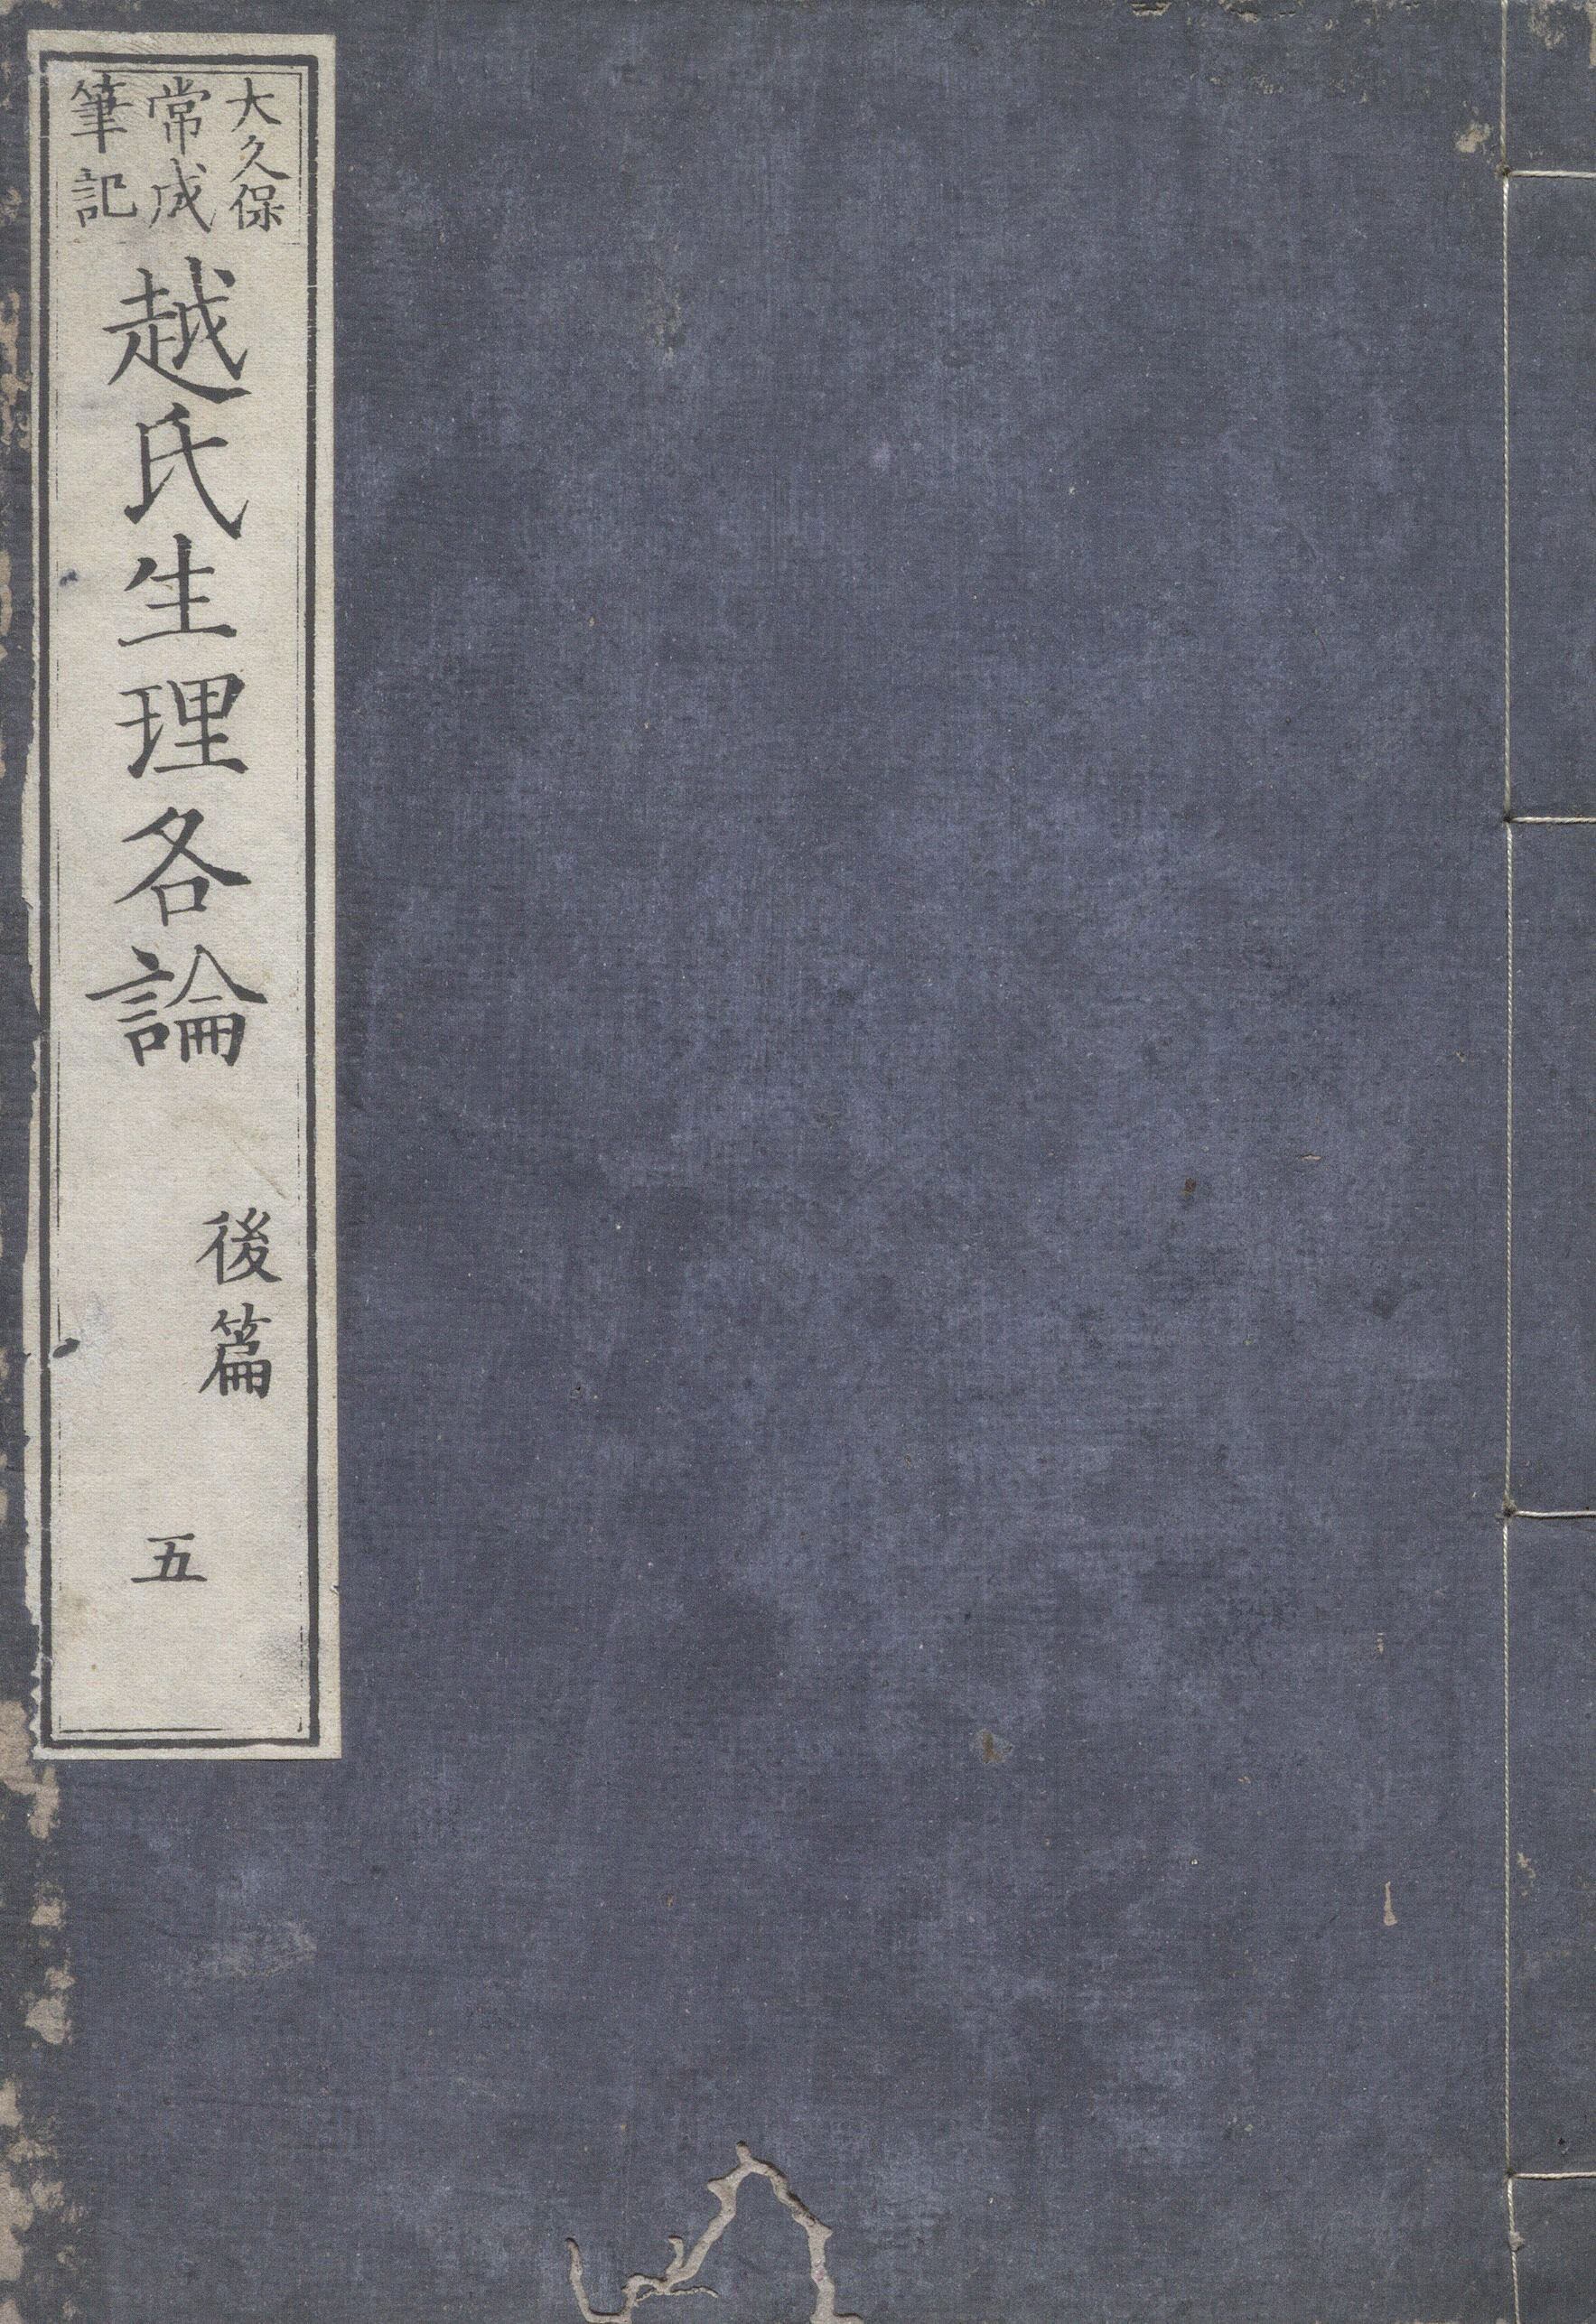 大久保
常成
筆記
越氏生理各論
後篇
五